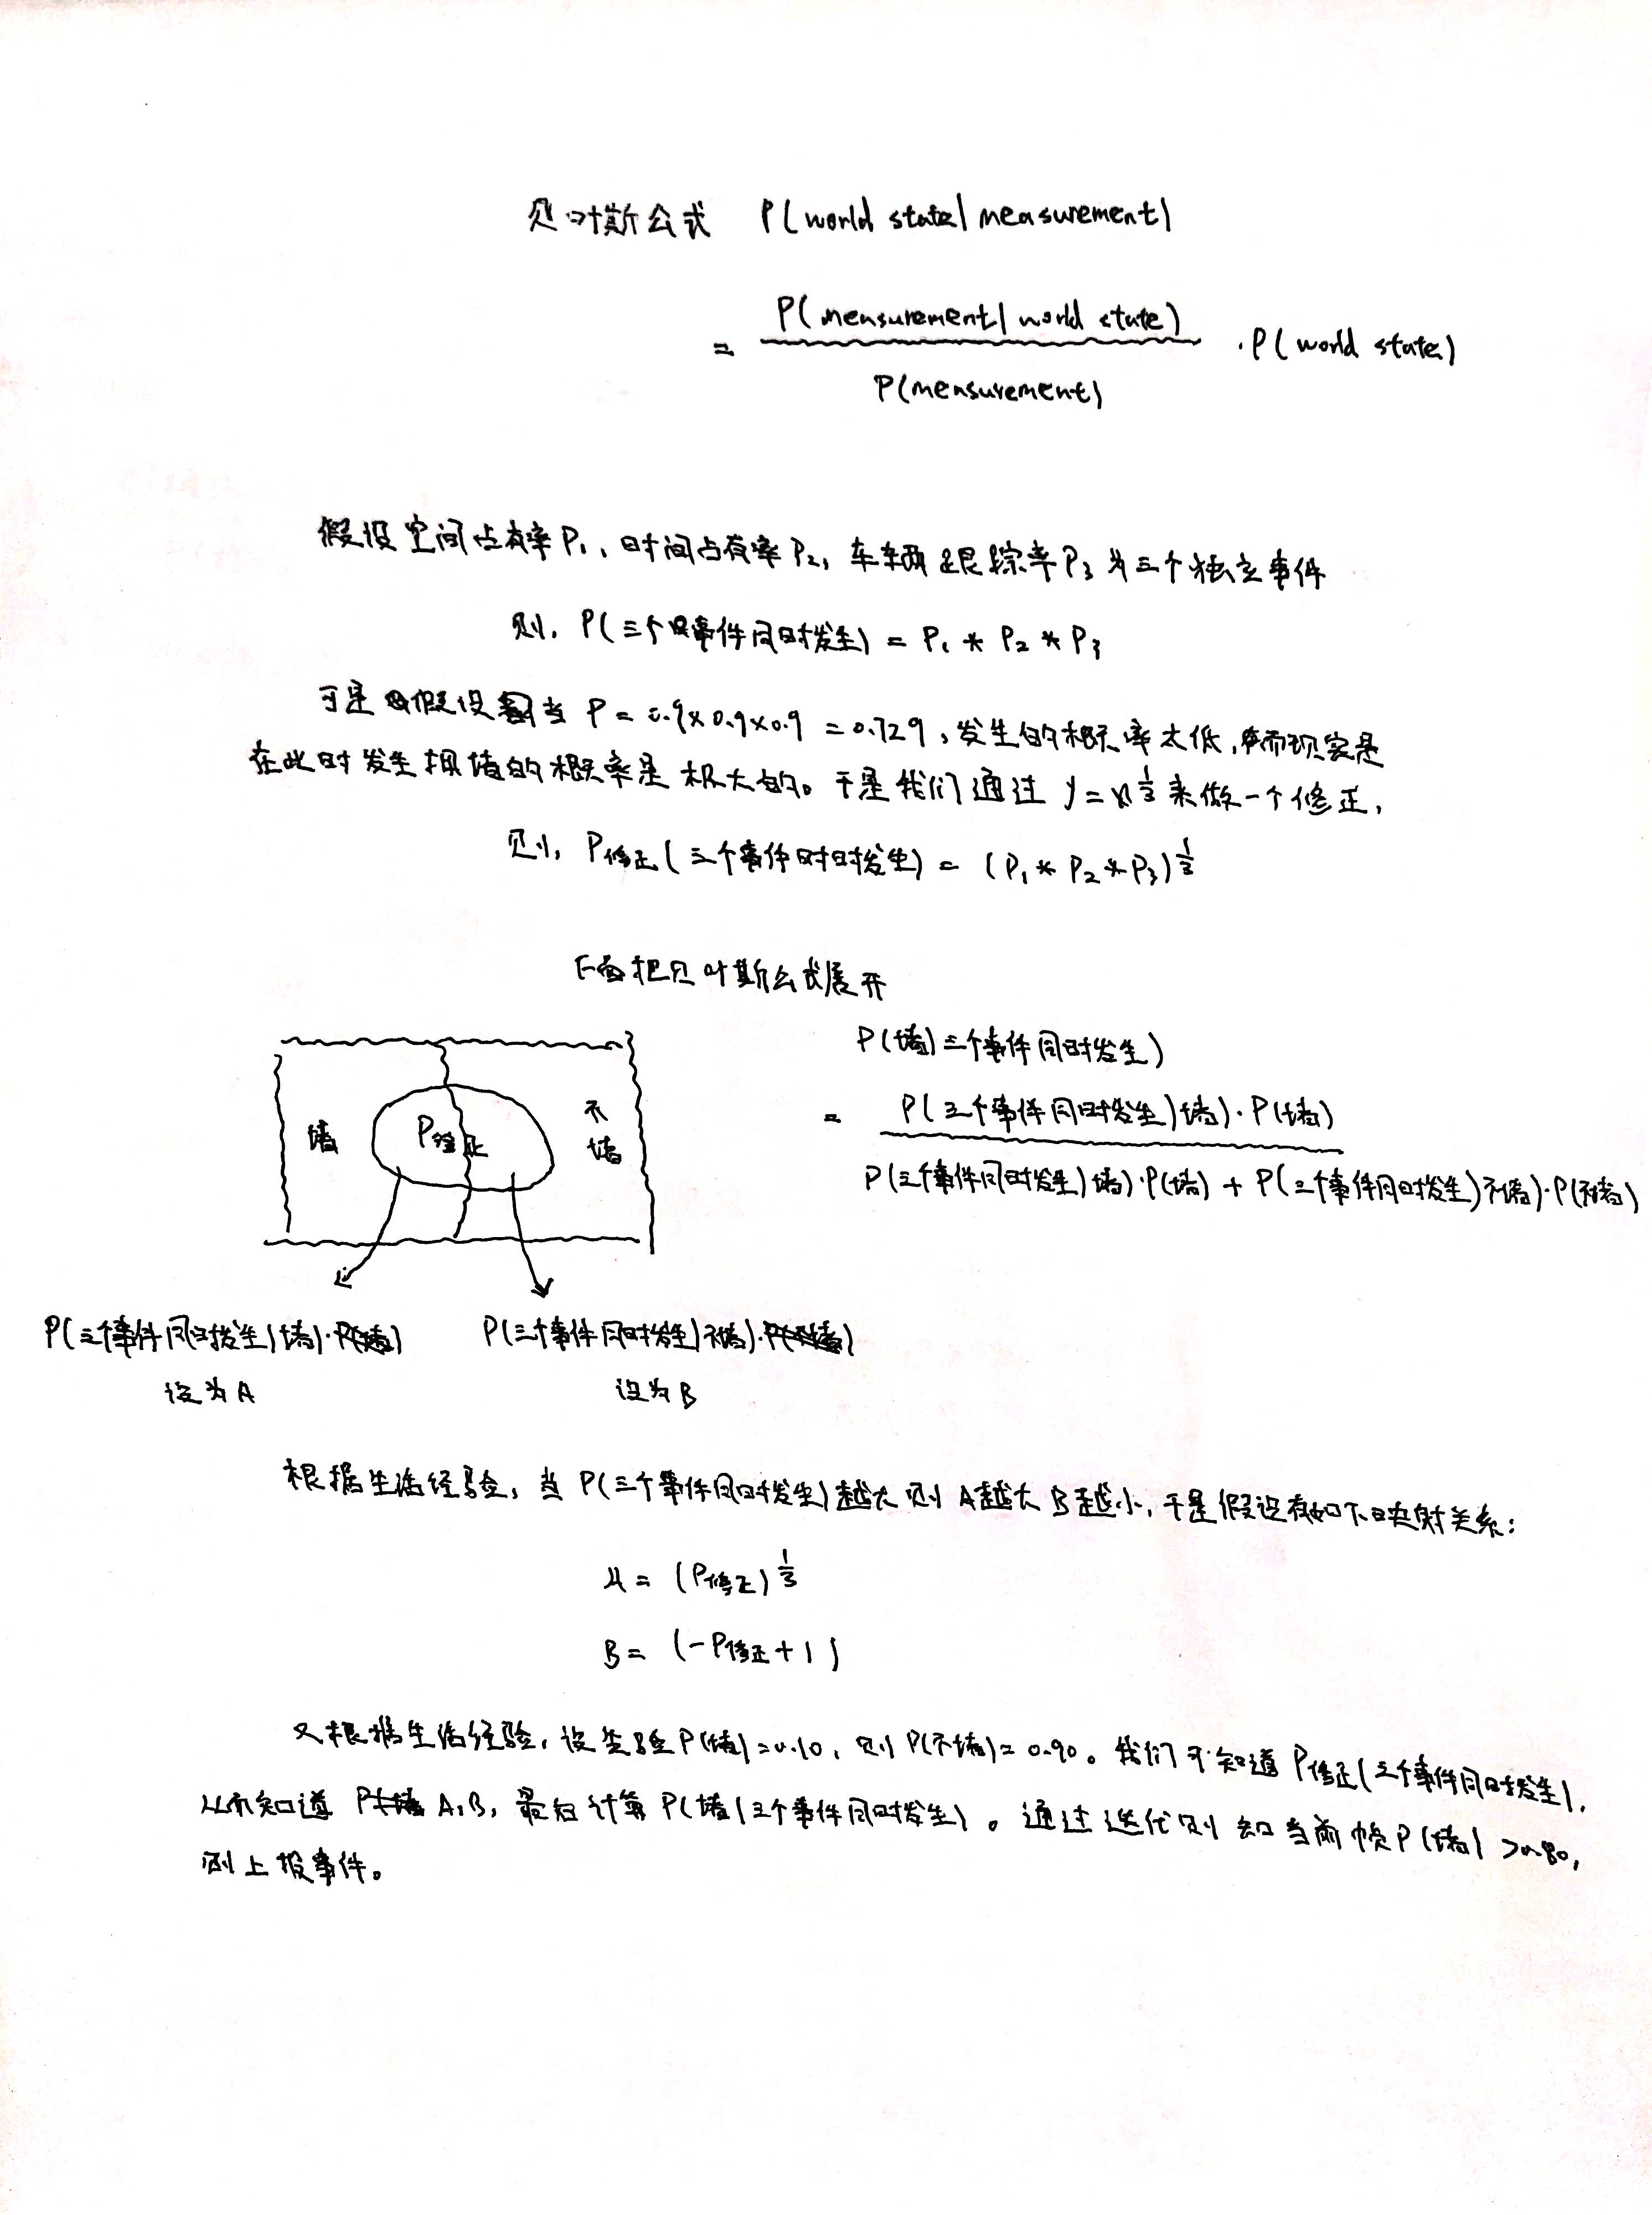 贝叶斯公式 P(world state|measurement)
= P(measurement|world state) / P(measurement) · P(world state)
假设空间占有率P₁、时间占有率P₂, 车辆跟踪率P₃为三个独立事件
则, P(三个事件同时发生) = P₁ * P₂ * P₃
可是假设当 P = 0.9×0.9×0.9 = 0.729, 发生的概率太低, 而现实是
在此时发生拥堵的概率是极大的。于是我们通过 y = x^⅓ 来做一个修正,
则, P修正(三个事件同时发生) = (P₁ * P₂ * P₃)^⅓
下面把贝叶斯公式展开
P(堵|三个事件同时发生)
= P(三个事件同时发生|堵)·P(堵) / P(三个事件同时发生|堵)·P(堵) + P(三个事件同时发生|不堵)·P(不堵)
堵 P修正 不堵
P(三个事件同时发生|堵) P(三个事件同时发生|不堵)
设为A 设为B
根据生活经验, 当 P(三个事件同时发生)越大则 A越大 B越小, 于是假设有如下映射关系:
A = (P修正)^⅓
B = (-P修正+1)
又根据生活经验, 设先验P(堵)=0.10, 则P(不堵)=0.90。我们可知道P修正(三个事件同时发生),
从而知道 A,B, 最后计算P(堵|三个事件同时发生)。通过迭代则知当前帧P(堵)>0.80,
则上报事件。